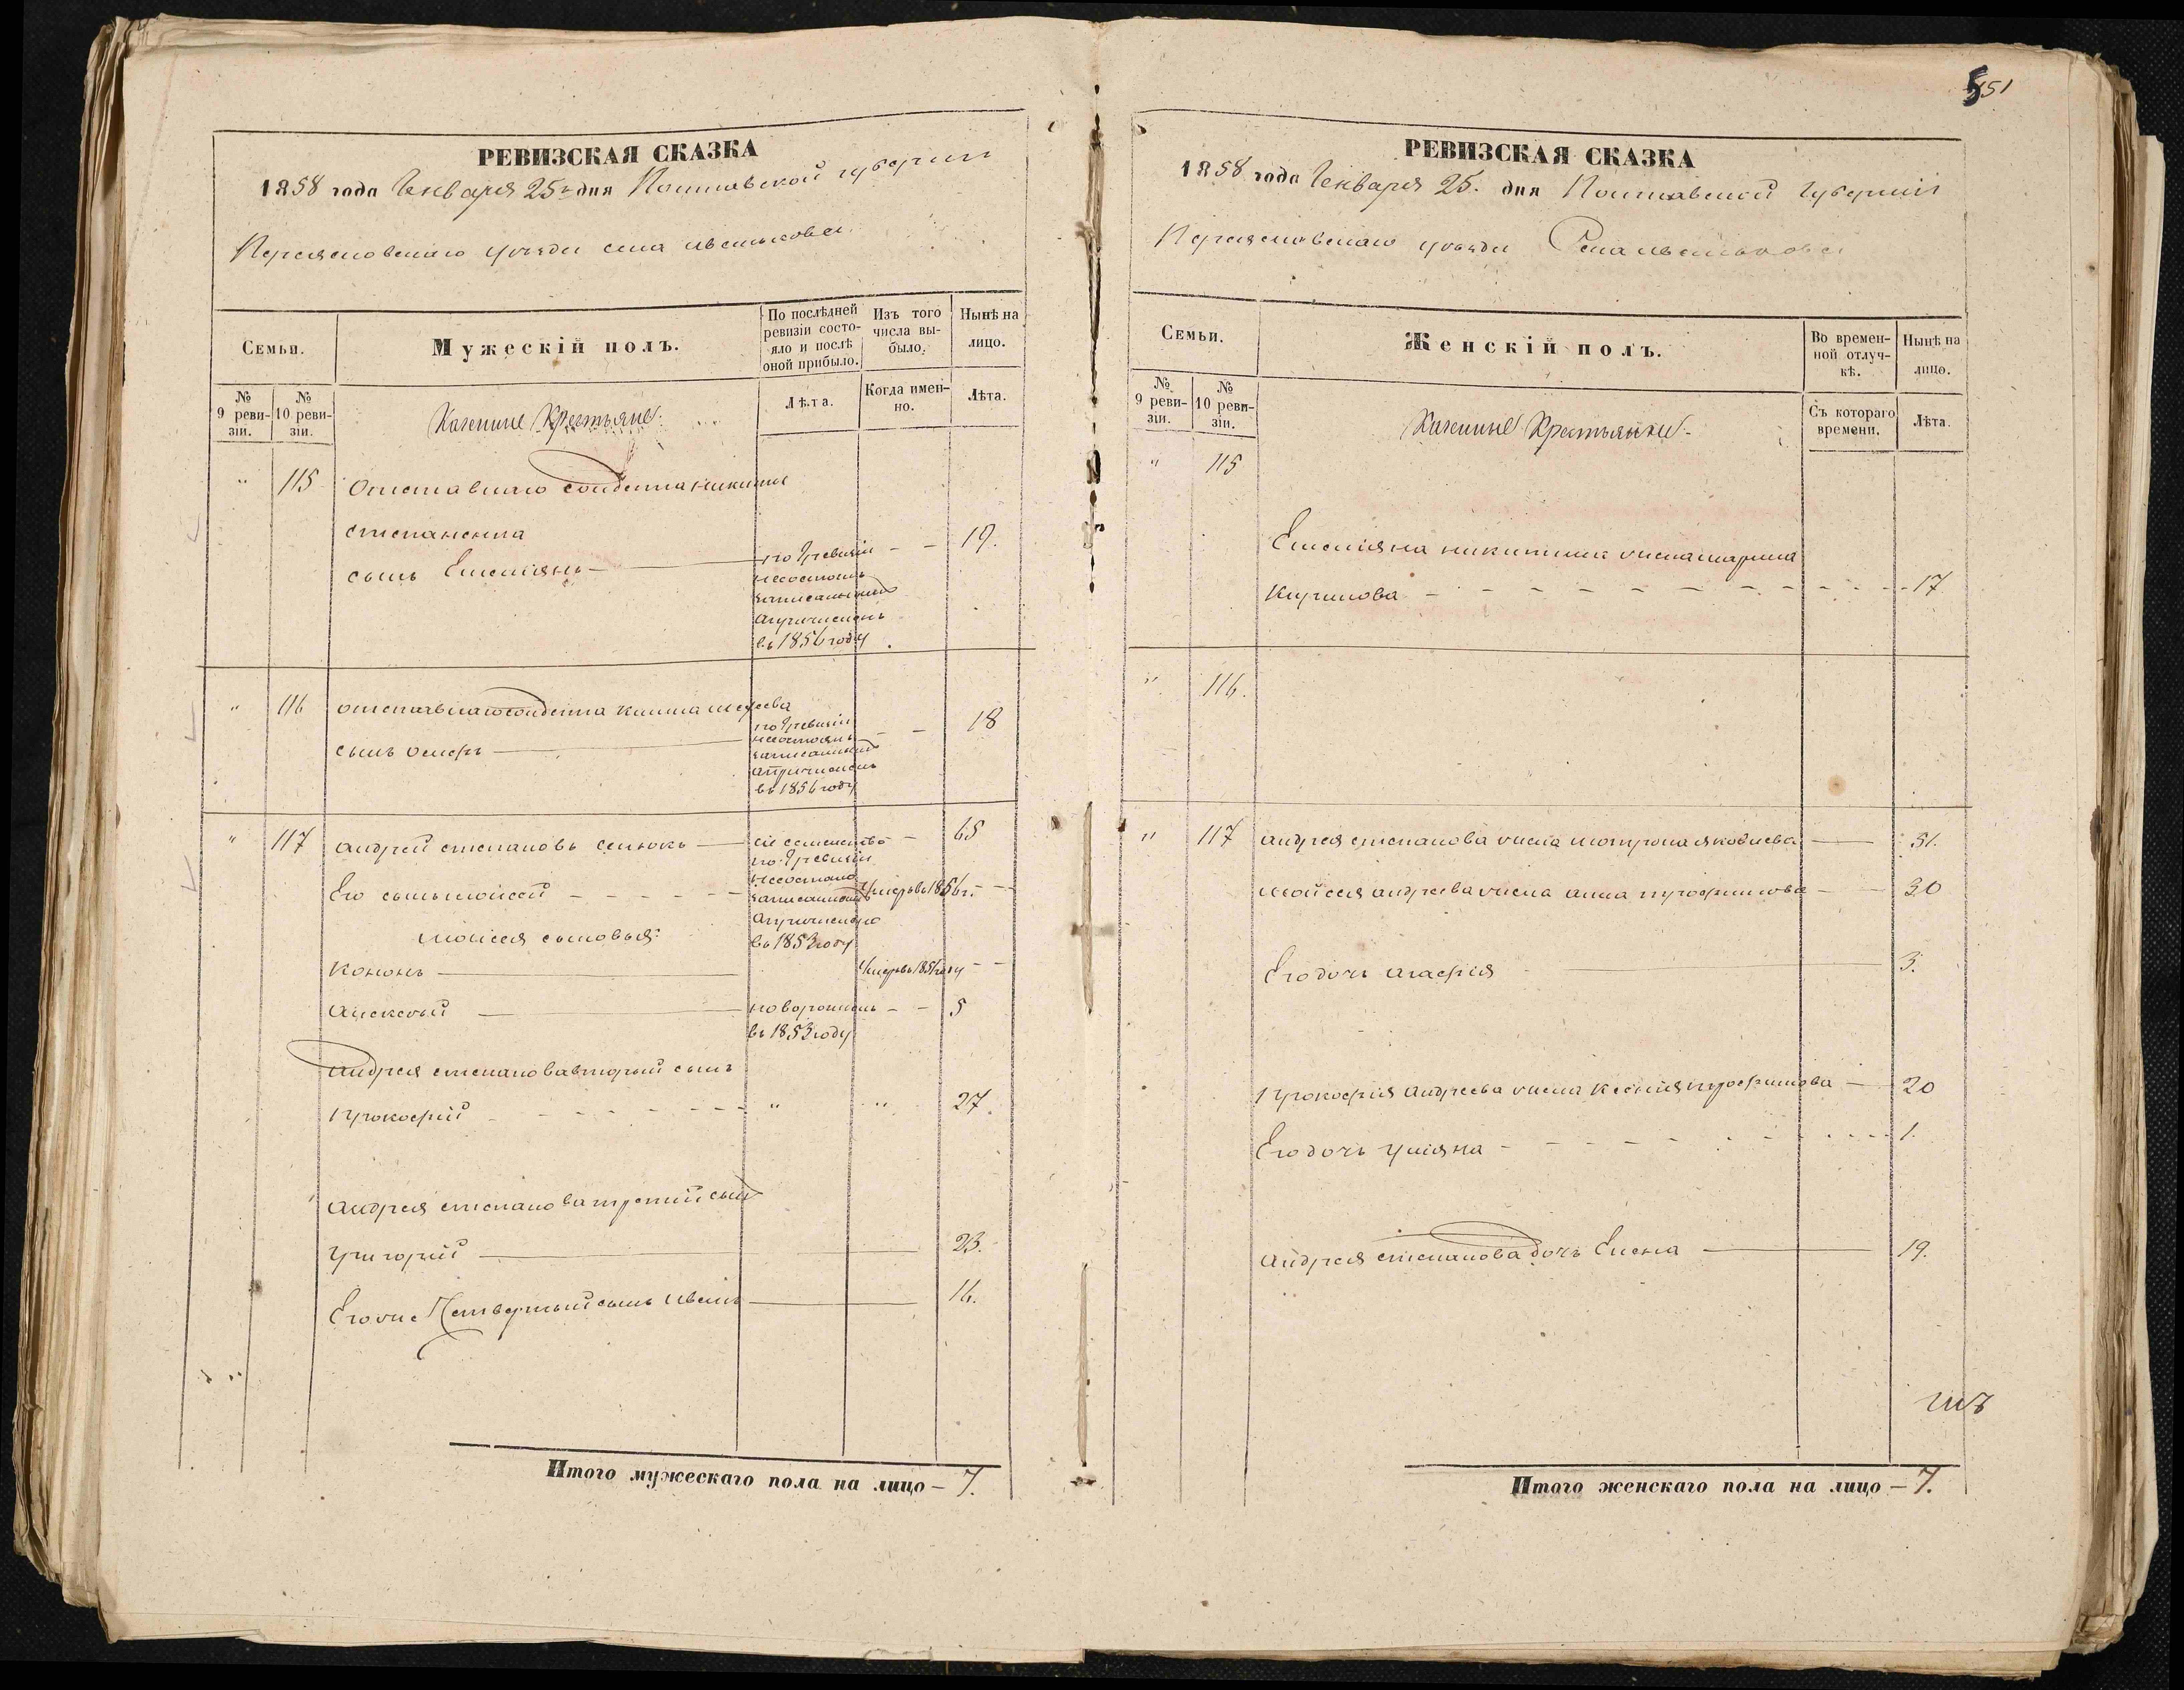 551
РЕВИЗСКАЯ СКАЗКА
1858 года Генваря 25го дня Полтавской губернии
Переясловскаго уезда села
Семьи.
Мужескій полъ.
По послѣдней ревизіи состо-
яло и послѣ
оной прибыло.
Изъ того
числа вы-
было.
Нынѣ на
лицо.
№
9 реви-
зіи.
№
10 реви-
зіи.
Казенные Крестьяне
Лѣта.
Когда имен-
но.
Лѣта.
" 115 Отставнаго солдата Никиты
Степанента
сынъ Емелiянъ 19.
по 9 ревизiи
несостоялъ
записанный
а причисленъ
въ 1856 году
" 116 отставнаго солдата Клима
сынъ 18
по 9 ревизiи
несостоялъ
записанный
а причисленъ
въ 1856 году
" 117 Андрей степановъ 65
сiе семейство
по 9 ревизiи
несостояло
Его сынъ моисей умеръ въ 1856 г.
а причислено
въ 1853 году
моисея сыновья:
Кононъ умеръ въ 1851 году
Алексѣй новорожденъ 5
въ 1853 году
Андрея степанова вторый сынъ
Прокофiй " " 27.
Андрея степанова третiй сынъ
Григорiй 23.
Его же Четвертый сынъ Иванъ 16.
Итого мужескаго пола на лицо – 7.
РЕВИЗСКАЯ СКАЗКА
1858 года Генваря 25. дня Полтавской Губернiи
Переясловскаго уезда Села
Семьи.
Женскій полъ.
Во времен-
ной отлуч-
кѣ.
Нынѣ на
лицо.
№
9 реви-
зіи.
№
10 реви-
зіи.
Казенные Крестьянки
Съ котораго
времени.
Лѣта.
" 115
Емелiяна никитина жена марина
Кирилова 17
" 116.
" 117 андрея степанова жена мотрона яковлева 51.
моисея андреева жена анна трофимова 30
Его дочь агафiя 3.
Прокофiя Андреева жена Ксенiя трофимова 20
Его дочь улiяна 1.
Андрея степанова дочь Елена 19.
Итого женскаго пола на лицо – 7.